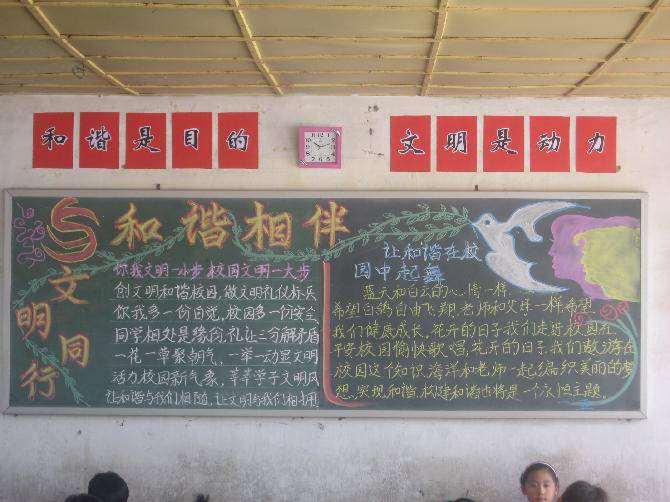 和谐是目的
文明是动力
和谐相伴
文明同行
你我文明一小步 校园文明一大步
创文明和谐校园,做文明礼仪标兵
你我多一份自觉,校园多一份安全
同学相处是缘份,礼让三分解矛盾
一花一草聚朝气,一举一动显文明
活力校园新气象,莘莘学子文明风
让和谐与我们相随,让文明与我们相拥
让和谐在校
园中起舞
蓝天和白云的心情一样
希望白鸽自由飞翔,老师和父母一样希望
我们健康成长,花开的日子我们走进校园在
平安校园愉快歌唱,花开的日子我们遨游在
校园这知识海洋和老师一起编织美丽的梦
想,实现和谐,构建和谐也将是一个永恒主题。